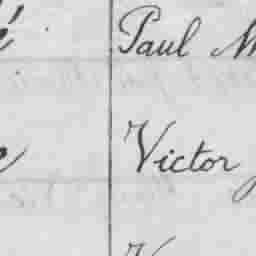 Paul
Victor